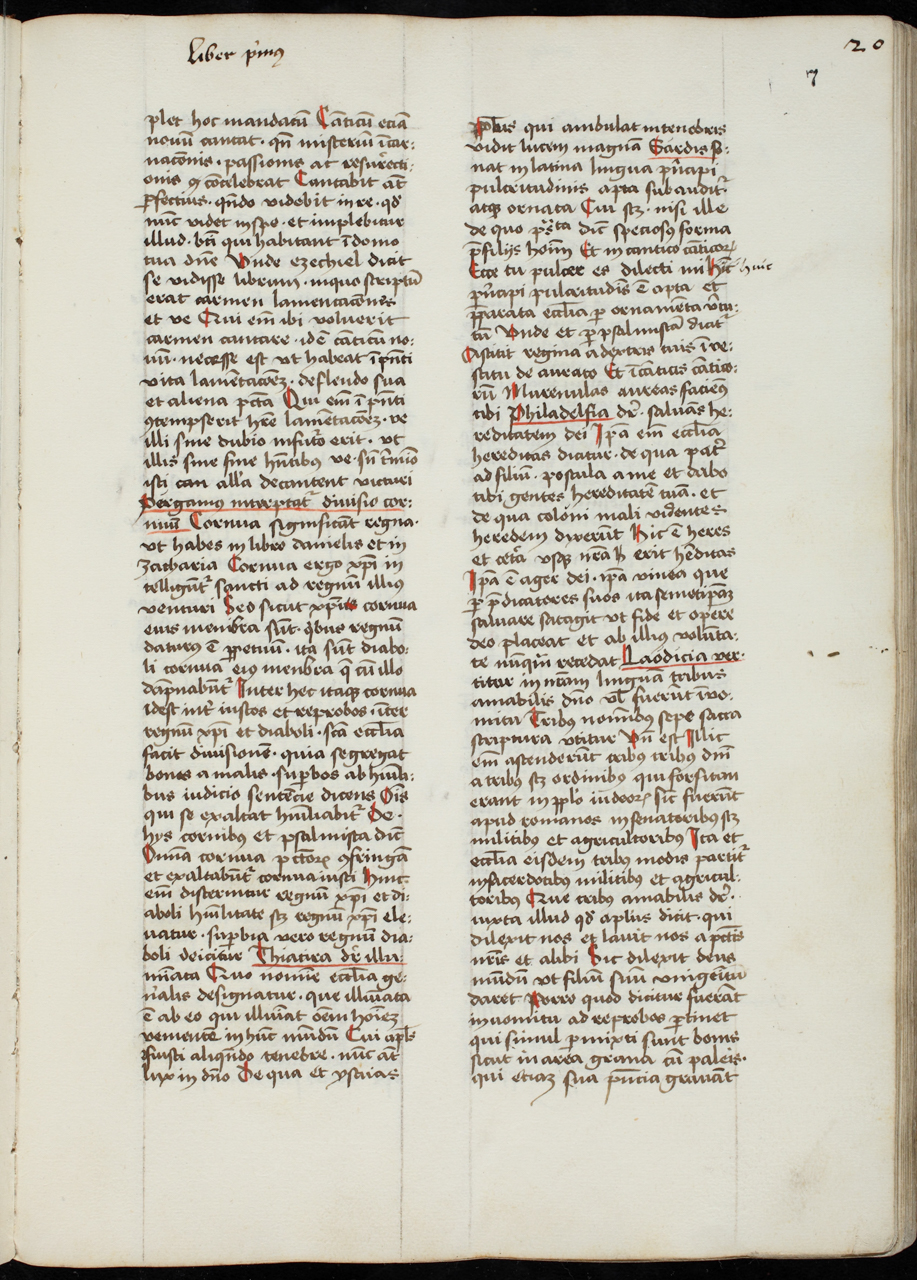 Liber p'mus
20
7
plet hoc mandatū Cāticū eciā
nouū cantat · qn̄ misteriū īcar:
nacōnis · passionis ac resurrecti:
onis 9 cōcelebrat Cantabit at̄
ꝑfectius · qn̄do videbit in re · qd̓
nūc videt in spe · et implebitur
illud · bt̄i qui habitant ī domo
tua dn̄e Vnde ezechiel dicit
se vidisse librum · in quo scriptū
erat carmen lamentacōnes
et ve Qui em̄ ibi voluerit
carmen cantare · idē cāticū no:
uū · necesse est vt habeat ī p̄nti
vita lamētacōez · deflendo sua
et aliena pctā Qui em̄ ī p̄nti
9tempserit hr̄e lamētacōez · ve
illi sine dubio in futuro erit · vt
illis sine fine hn̄tibus ve · sn̄ t̄mīo
isti can all'a decantent victuri
Pergamus interptat̓ diuisio cor:
nuū Cornua significāt regna ·
vt habes in libro danielis et in
zacharia Cornua ergo xp̄i in
telligūt̓ sancti ad regnū illius
venturi Sed sicut xp̄us cornua
eius membra sūt · qbus regnū
daturus ē ꝑpetuū · ita sūt diabo:
li cornua eius menbra q̄ cū illo
dāpnabūt̓ Inter hec itaqꝫ cornua
idest int̓ iustos et reprobos · inter
regnū xp̄i et diaboli · scā eccl̄ia
facit diuisionē · quia segregat
bonos a malis · suꝑbos ab hūīli:
bus iudicio sentēcie dicens Oīs
qui se exaltat hūīliabit̓ De ·
hys cornibus et psalmista dic̄
Omīa cornua pctor̄ 9fringā
et exaltabūt̓ cornua iusti Hinc
em̄ discernitur regnū xp̄i et di:
aboli hūīlitate scꝫ regnū xp̄i ele:
uatur · suꝑbia vero regnū dia:
boli deicitur Thiatira dr̄ illu:
mīata Quo nomīe eccl̄ia ge:
n̓alis designatur · que illūīata
ē ab eo qui illūīat oēm hoīez
venientē in hūc mūdū Cui apl's
Fuisti aliqn̄do tenebre · nūc at̄
lux in dn̄o De qua et ysaias
Ppl̄us qui ambulat in tenebris
vidit lucem magnā Sardis so:
nat in latina lingua p'ncipi
pulcritudinis apta subaudit̓
atqꝫ ornata Cui scꝫ · nisi ille
de quo psta dic̄ speciosus forma
p̄ filijs hoīm Et in cantico cāticor̄
Ecce tu pulcer es dilecti mi Huic huic
p'ncipi pulcritudīs ē apta et
p̄parata eccl̄ia ꝑ ornamēta v̓tu:
tū Vnde et ꝑ psalmistā dicit̓
Astitit regina a dextris tuis ī ve:
stitu de aurato Et ī cāticis cātico:
rū Murenulas aureas faciem9
tibi Philadelfia dr̄ · saluās he:
reditatem dei Ip̄a em̄ eccl̄ia
hereditas dicitur · de qua pat̓
ad filiū · postula a me et dabo
tibi gentes hereditatē tuā · et
de qua coloni mali videntes
heredem dixerūt Hic ē heres
et cet̓a vsqꝫ nr̄a h̓ erit hēditas
Ip̄a ē ager dei · ip̄a vinea que
ꝑ p̄dicatores suos ita semetip̄aꝫ
saluare satagit vt fide et opere
deo placeat et ab illius volūta:
te nūqm̄ recedat Laodicia ver:
titur in nr̄am linguā tribus
amabilis dn̄o vl̄ fuerūt ī vo:
mitu Tribus nomībus sepe sacra
scriptura vtitur Vn̄ est Illic
em̄ ascenderūt tribus tribus dn̄i
a tribus scꝫ ordinibus qui forsitan
erant in ppl̄o iudeor̄ sic̄ fuerūt
apud romanos in senatoribus scꝫ
militibus et agricultoribus Ita et
eccl̄ia eisdem tribus modis partit̓
in sacerdotibus militibus et agricul:
toribus Que tribus amabilis dr̄ ·
iuxta illud qd̓ apl'us dicit · qui
dilexit nos et lauit nos a pctīs
nr̄is et alibi Sic dilexit deus
mūdū vt filiū suū vnigenitū
daret Porro quod dicitur fuerāt
in vomitu ad reprobos ꝑtinet
qui simul ꝑmixti sunt bonis
sicut in area grana cū paleis ·
qui etiaꝫ sua p̄ncia grauāt